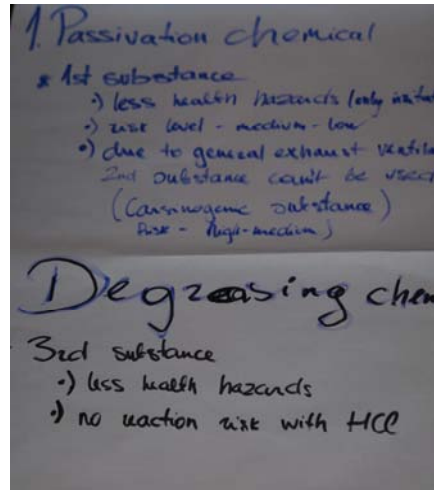 1. Passivation chemical
* 1st substance
•) less health hazards (only irritat
•) risk level - medium-low
•) due to general exhaust ventila
2nd substance can't be used
(Carsinogenic substance)
Risk - high-medium)
Degreasing chem
3rd substance
•) less health hazards
•) no reaction risk with HCl